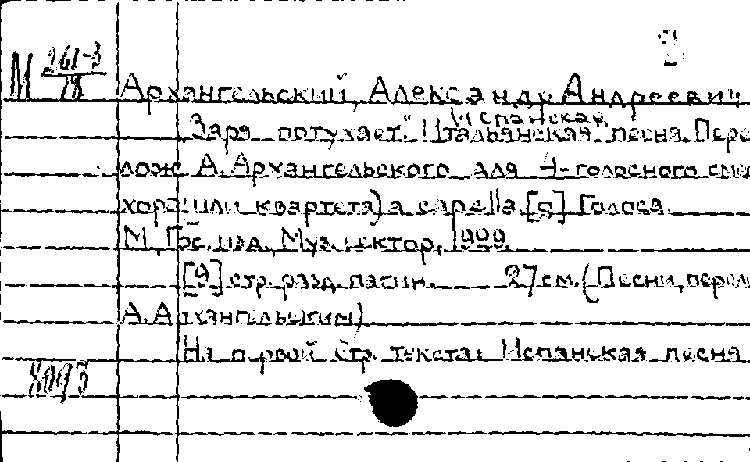 2
М 261-3/18
Архангельский, Александр Андреевич
Испанская
"Заря потухает." Итальянская песня. Пере
лож. А. Архангельского для 4-голосного сме
хора (или квартета) a capella. [с] Голоса.
М., Гос. изд. Муз. сектор,
[9] стр. разд. пагин. 27 см. (Песни, перел
А. Архангельским)
На первой стр. текста: Испанская песня
8093